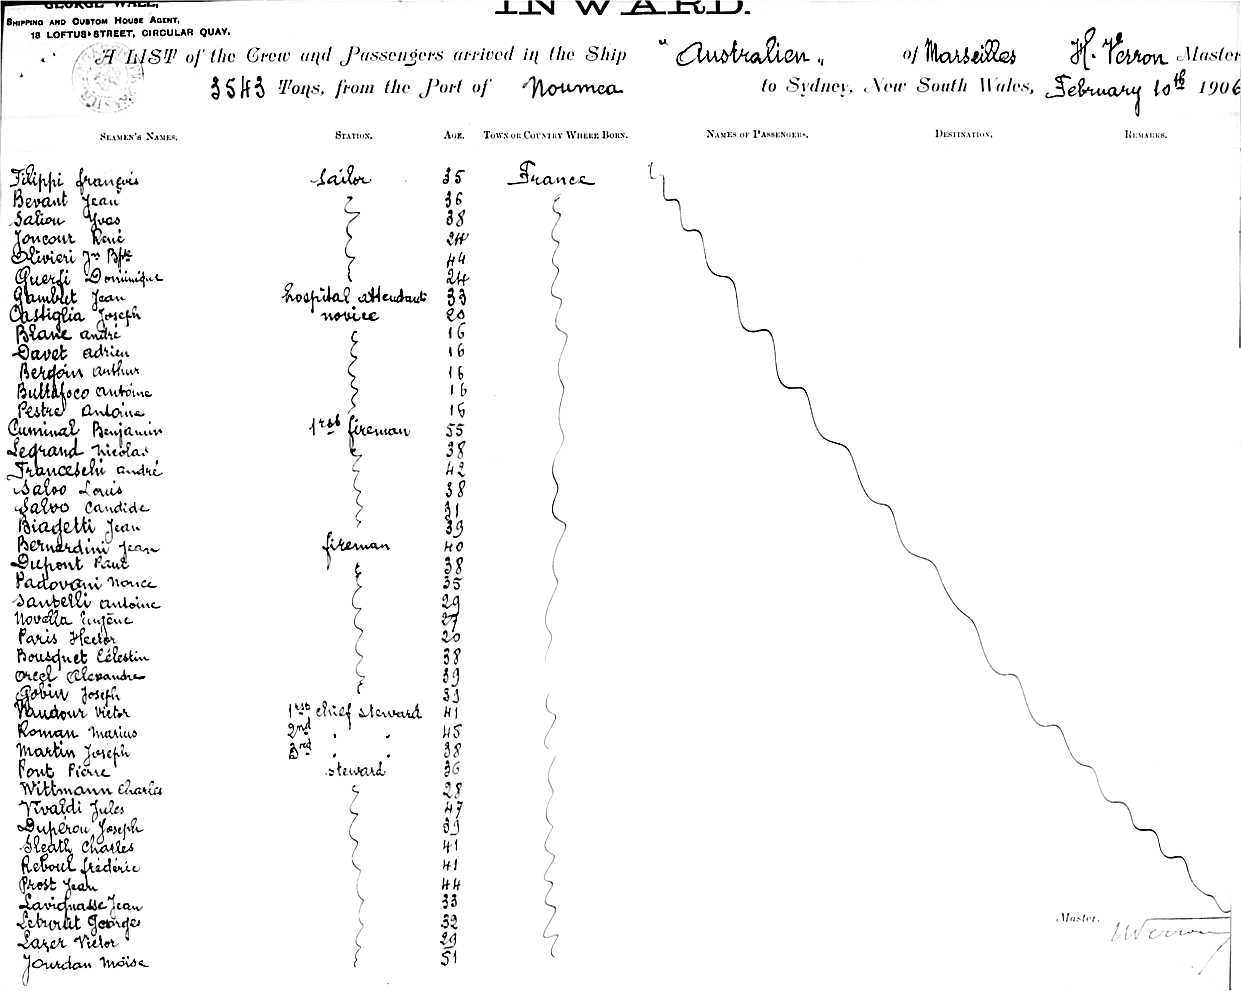 GEORGE WALL,
SHIPPING AND CUSTOM HOUSE AGENT,
18 LOFTUS STREET, CIRCULAR QUAY.
INWARD.
A LIST of the Crew and Passengers arrived in the Ship "Australien" of Marseilles H. Verron Master
3543 Tons, from the Port of Noumea to Sydney, New South Wales, February 10th 1906
SEAMEN'S NAMES. STATION. AGE. TOWN OR COUNTRY WHERE BORN. NAMES OF PASSENGERS. DESTINATION. REMARKS.
Filippi françois sailor 35 France
Bevant Jean 36
Saliou Yvas 38
Joncour René 24
Olivieri Jn Bpte 44
Guerfi Dominique 24
Gamblet Jean hospital attendant 33
Castiglia Joseph novice 20
Blanc andré 16
Davet adrien 16
Bergoin arthur 16
Buttafoco antoine 16
Pestre Antoine 16
Cuminal Benjamin 1rst fireman 55
Legrand Nicolas 38
Franceschi andré 42
Salvo Louis 38
Salvo Candide 31
Biagetti Jean 39
Bernardini Jean fireman 40
Dupont Paul 38
Padovani Nonce 35
Santelli antoine 29
Novella Eugène 27
Paris Hector 20
Bousquet Célestin 38
Orcel Alexandre 39
Gobin Joseph 33
Vaudour Victor 1rst chief steward 41
Roman Marius 2nd 45
Martin Joseph 3rd 38
Pont Pierre steward 36
Wittmann Charles 28
Vivaldi Jules 47
Dupérou Joseph 39
Sleath Charles 41
Reboul frédéric 41
Prost Jean 44
Lavignasse Jean 33
Georges 32
Lazer Victor 29
Jourdan Moïse 51
Master. HVerron